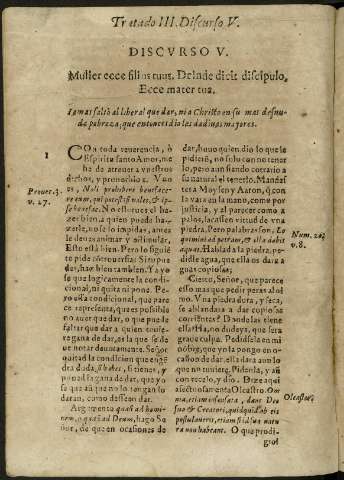 Tratado III. Discurso V.
DISCVRSO V.
Mulier ecce filius tuus. Deinde dicit discipulo.
Ecce mater tua.
Iamas faltò al liberal que dar, ni a Christo en su mas desnu-
da pobreza, que entonces dio las dadiuas mayores.
1
CON toda reuerencia, ò
Espiritu santo Amor, me
he de atreuer a vuestros
dichos, y prouocíos a. V.
Prouer. 3.
v. 27.
uos, Noli prohibere beneface-
re eum, qui potest: si vales, & ip-
se benefac. No estorues el ha-
zer bien a quien puede ha-
zerle, no se lo impidas, antes
le deues animar y disimular.
Esto està bien. Pero lo siguiē
te pide
des, haz bien tambien. Ya yo
sè que logicamente la condi-
cional, ni quita ni pone. Pe-
ro essa condicional, que pare
ce representa, que es possible
no auer que dar, o que puede
faltar que dar a quien conse-
regana de dar, es la que se de
ue notar deuotamente. Señor
quitad la condicion que engē
dra duda, si vales, si tienes, y
poned la causal, porque yo
sè que a nadie no long an lo
daran, como desseen dar.
Argumento quasi ad homi-
nem, o quasi ad Deum, hago Se
ñor, de que en ocasiones de
dar, huuo quien dio lo que le
pidierō, no solo con no tener
lo, pero aun siendo cotrario a
su natural el tenerlo. Mandas
tes a Moysen y Aaron, q̃ con
la vara en la mano, como por
justicia, y al parecer como a
palos, sacassen virtud de vna
piedra. Pero palabras son. Lo
Num. 20.
v. 8.
quimini ad petram, & illa dabit
aquas. Hablad a la piedra, pe-
didle agua, que ella os dara a
guas copiosas.
Cierto, Señor, que parece
esso mas que pedir peras al ol
mo. Vna piedra dura, y seca,
se ablandara a dar copiosas
corrientes? Donde las tiene
ella? Ha, no dudeys, que sera
graue culpa. Pedidsela en mi
nōbre, que yo la pongo en o-
casion de dar, ella dara aun lo
que no tuuiere. Pidenla, y aū
con rezelo, y dio. Dize aqui
a lecto nuestra Oleastro. Om
Oleastro.
nia, etiam insensata, dant Deo
suo & Creatori, quidquid ab eis
postulauerit, etiam si id ex natu
ra non habeant. O que prodi-
gio!